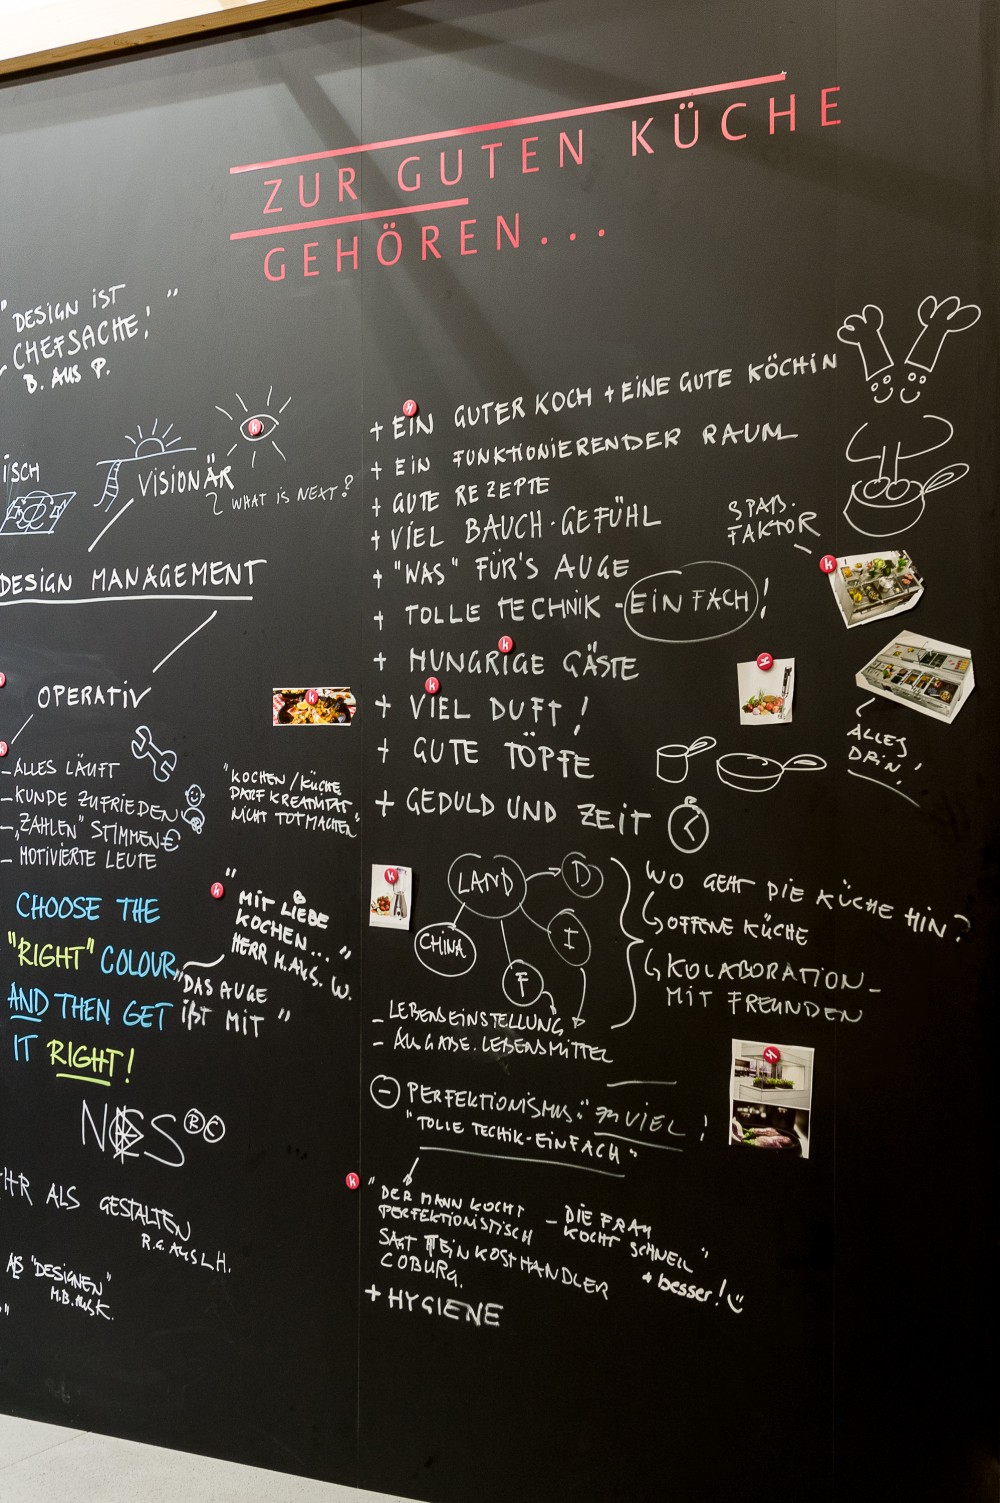 ZUR GUTEN KÜCHE
GEHÖREN...
"DESIGN IST
CHEFSACHE!"
B. AUS P.
ISCH
VISIONÄR
WHAT IS NEXT?
DESIGN MANAGEMENT
OPERATIV
- ALLES LÄUFT
- KUNDE ZUFRIEDEN
- "ZAHLEN" STIMMEN €
- MOTIVIERTE LEUTE
"KOCHEN/KÜCHE
DARF KREATIVITÄT
NICHT TOTMACHEN"
CHOOSE THE
"RIGHT" COLOUR,
AND THEN GET
IT RIGHT!
"MIT LIEBE
KOCHEN..."
HERR M. AUS. W.
"DAS AUGE
IßT MIT"
® ©
HR ALS GESTALTEN
R.G. AUS L.H.
ALS "DESIGNEN"
M.B. AUS K.
+ EIN GUTER KOCH + EINE GUTE KÖCHIN
+ EIN FUNKTIONIERENDER RAUM
+ GUTE REZEPTE
+ VIEL BAUCH-GEFÜHL
+ "WAS" FÜR'S AUGE
+ TOLLE TECHNIK - EINFACH!
+ HUNGRIGE GÄSTE
+ VIEL DUFT!
+ GUTE TÖPFE
+ GEDULD UND ZEIT
SPAß-
FAKTOR
ALLES
DRIN!
LAND
D
CHINA
I
F
WO GEHT DIE KÜCHE HIN?
OFFENE KÜCHE
KOLABORATION -
MIT FREUNDEN
- LEBENSEINSTELLUNG
- AUSGABE. LEBENSMITTEL
- PERFEKTIONISMUS: "ZUVIEL!
"TOLLE TECHIK-EINFACH"
"DER MANN KOCHT
PERFEKTIONISTISCH - DIE FRAU
KOCHT SCHNELL"
+ besser!
SAGT FEINKOSTHÄNDLER
COBURG.
+ HYGIENE